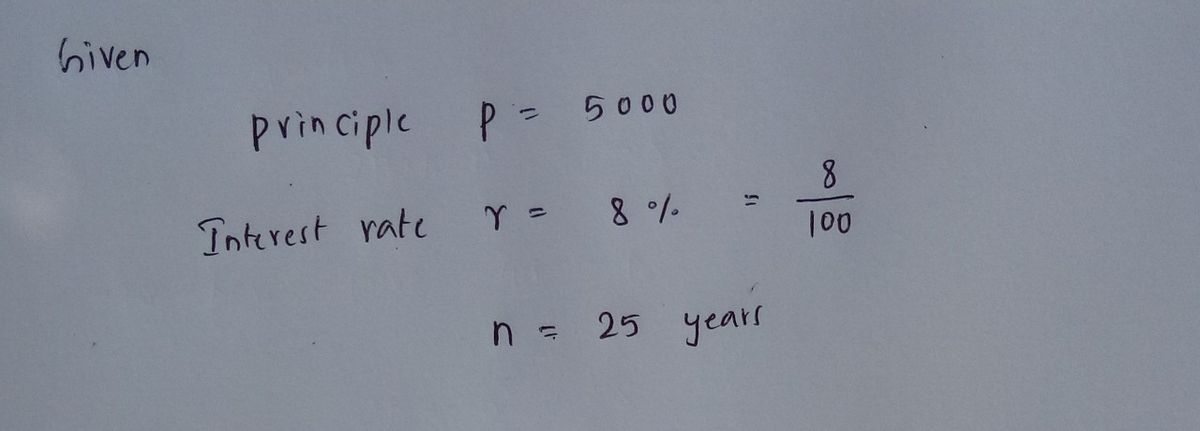 Given
principle p = 5000
Interest rate r = 8 % = 8/100
n = 25 years